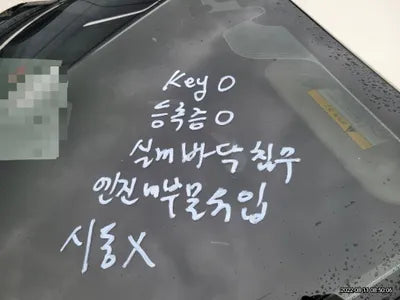 Key O
등록증 O
실내 바닥 침수
엔진 내부 물 유입
시동 X
2022-08-11 08:50:06